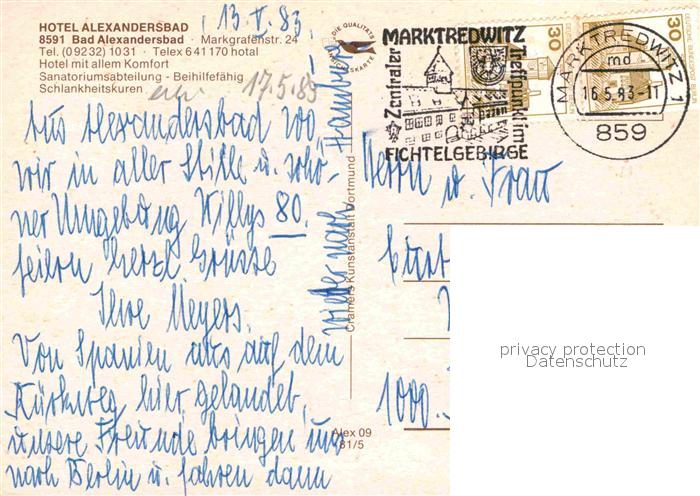 HOTEL ALEXANDERSBAD
8591 Bad Alexandersbad · Markgrafenstr. 24
Tel. (09232) 1031 · Telex 641170 hotal
Hotel mit allem Komfort
Sanatoriumsabteilung - Beihilfefähig
Schlankheitskuren
17.5.83
13.V.83.
Aus Alexandersbad wo
wir in aller Stille u. schö-
ner Umgebung Willys 80.
feiern herzl Grüsse
Ihre Meyers.
Von Spanien aus auf dem
hier gelandet,
unsere Freunde bringen uns
nach Berlin u. fahren dann
wieder nach Hamburg
DIE QUALITÄTS
Cramers Kunstanstalt Dortmund
Alex 09
81/5
MARKTREDWITZ
Zentraler
Treffpunkt im
FICHTELGEBIRGE
30
30
MARKTREDWITZ 1
md
16.5.83-11
859
Herrn u. Frau
1000
privacy protection
Datenschutz